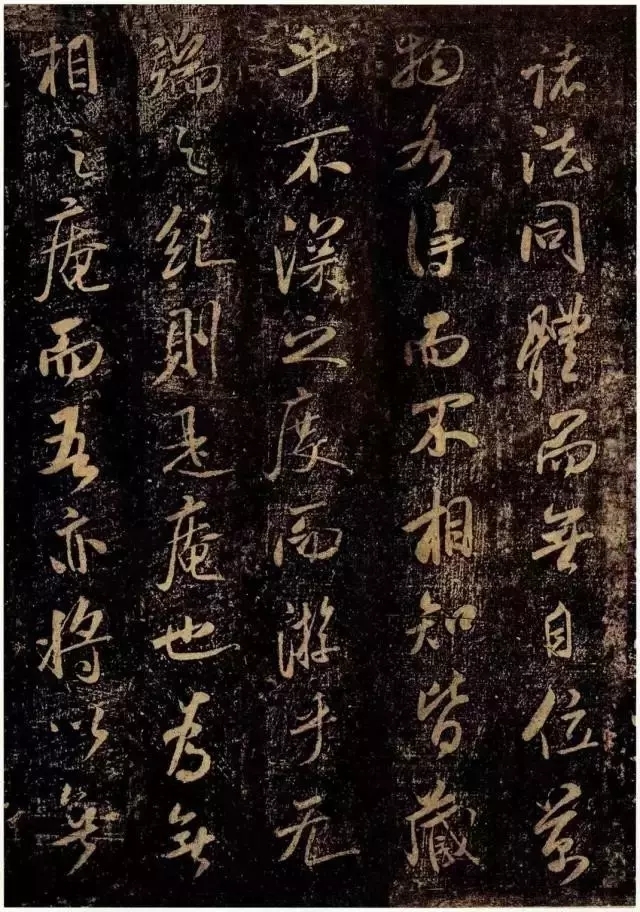 諸法同體而無自位萬
物各得而不相知皆藏
乎不深之度而游乎无
端之紀則是庵也為無
相之庵而吾亦將以無